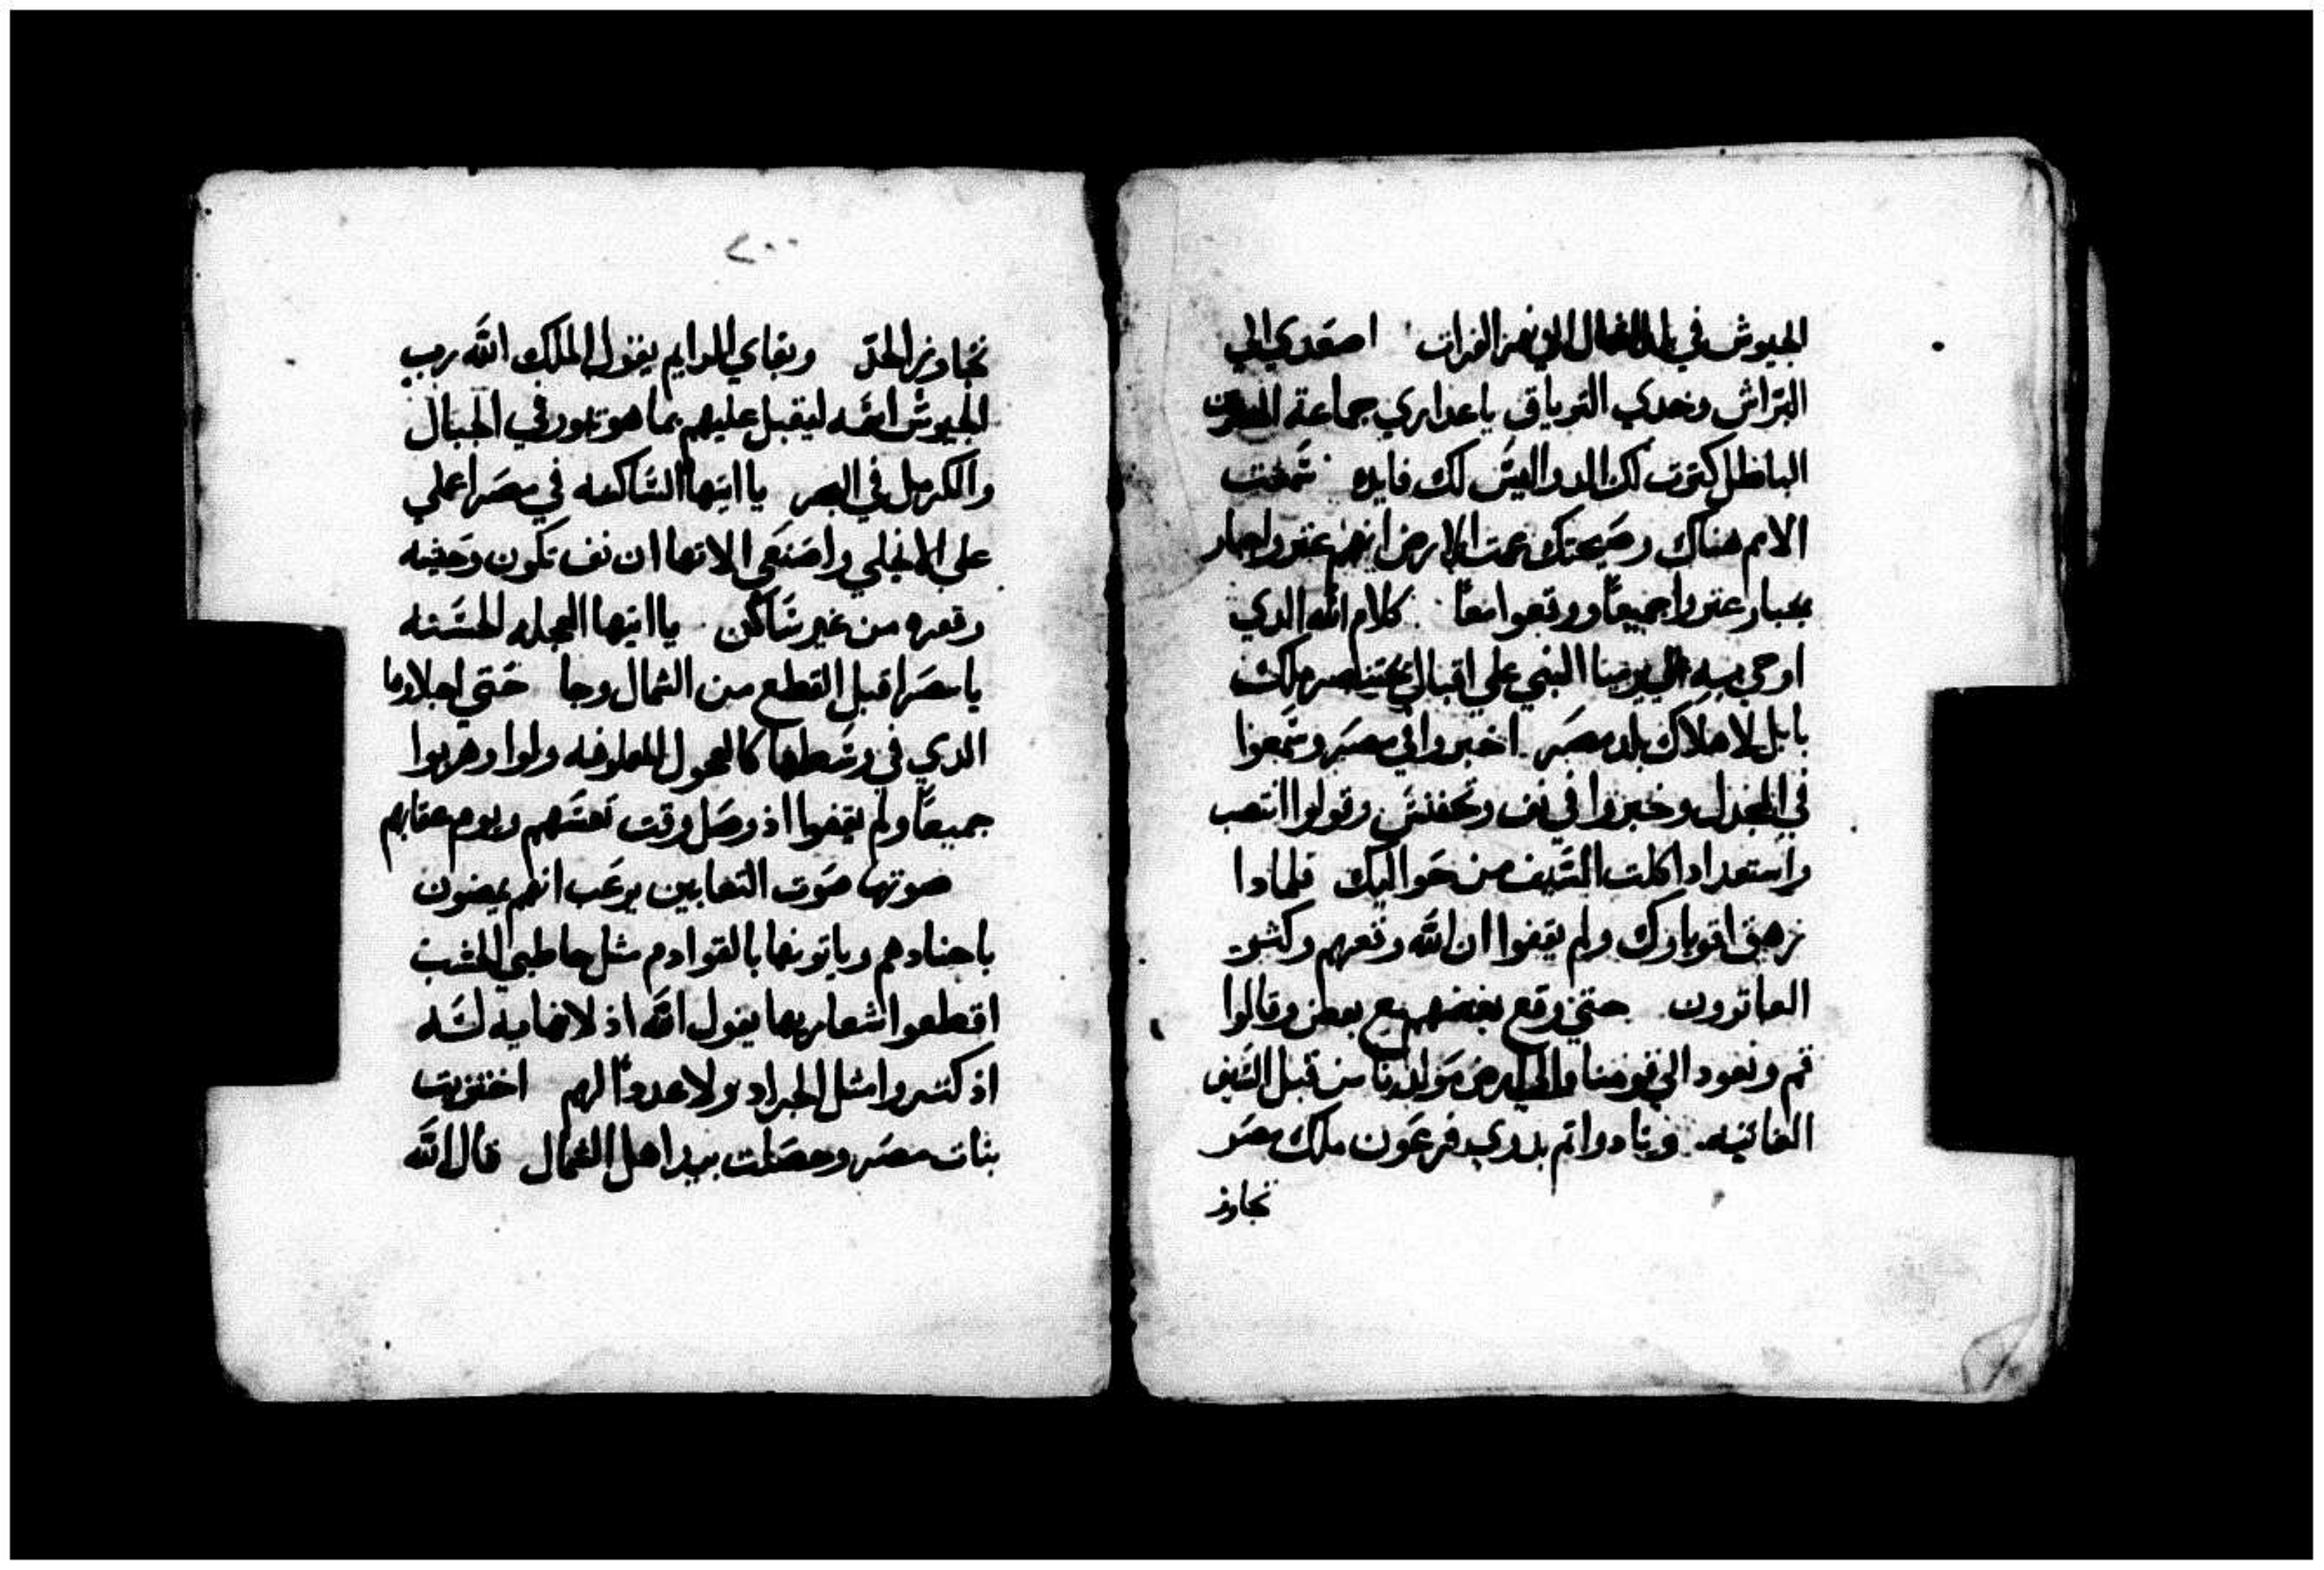 الجيوش في بلد الشمال الي نهر الفرات اصعدي الي
التراش وخدي الترياق ياعداري جماعة المصريين
الباطل كترت لك الدوا ليس لك فايده سمعت
الامم هناك وصيحتك عمت الارض انهم عترو اجبار
بجبار عتروا جميعًا ووقعوا معًا كلام الله الدي
اوحي به الي يرميا النبي علي اقبال بختناصر ملك
بابل لاهلاك بلد مصر اخبروا في مصر وسمعوا
في المجدل وخبروا في نف وتحفنس وقولوا انتصب
واستعد اد اكلت السيف من حواليك فلمادا
زهق اقوياوك ولم يقفوا ان الله دفعهم وكثرة
العاترون حتي وقع بعضهم مع بعض وقالوا
قم ونعود الي قومنا والي ارض مولدنا من قبل السيف
الغاتيه ونادوا تم بدري فرعون ملك مصر
تجاوز
٢٠٠
تجاوز الحد وبقاي الدايم يقول الملك الله رب
الجيوش اسمه ليقبل عليهم بما هو تبور في الجبال
والكرمل في البحر يا ايتها الساكنه في مصر اعملي
علي الانجلي واصنعي الاتها ان نف تكون وحيشه
وقعره من غير ساكن يا ايتها العجله الحسنه
يا مصر اقبل القطع من الشمال وجا حتي اجلاوها
الدي في وسطها كالعجول المعلوفه ولوا وهربوا
جميعًا ولم يقفوا اذ وصل وقت تعسهم ويوم عقابهم
صوتها صوت التعابين يرعب انهم يمضون
باجنادهم وياتونها بالقوادم مثل حاطبي الخشب
اقطعوا شعاريها يقول الله اذ لا نهايه له
اذ كتروا مثل الجراد ولا عددًا لهم اختزيت
بنات مصر وحصلت بيد اهل الشمال قال الله